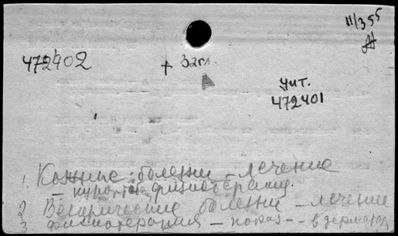 11/355
472902
+ загл.
Чит.
472401
1. Кожные болезни - лечение
- курорты, физиотерапия.
2 Венерические болезни - лечение
3 Физиотерапия - показ - в дерматол